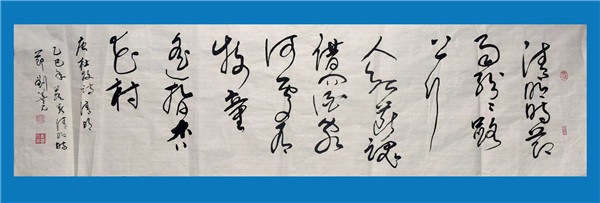 清明時節
雨紛々路
上行
人欲斷魂
借問酒家
何處有
牧童
遙指杏
花村
唐杜牧詩清明
乙巳年清明時
節劉